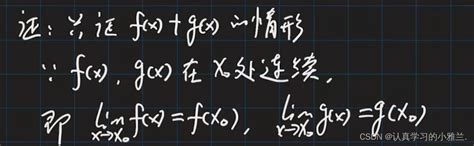 证:只证 f(x)+g(x) 的情形
∵ f(x), g(x) 在 x₀处连续,
即 lim x→x₀ f(x)=f(x₀), lim x→x₀ g(x)=g(x₀)
CSDN @认真学习的小雅兰.